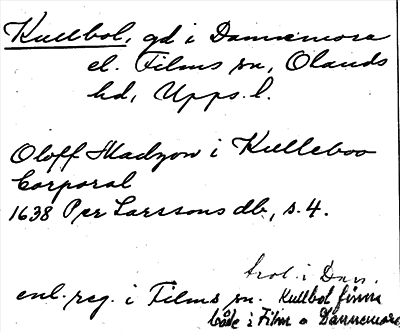 Kullbol, gd i Dannemora
el. Films sn, Olands
hd, Upps. l.
Oloff Madzon i Kulleboo
Corporal
1638 Per Larssons db, s. 4.
trol. i Dan.
enl. reg. i Films sn. Kullbol finns
både i Film o Dannemora